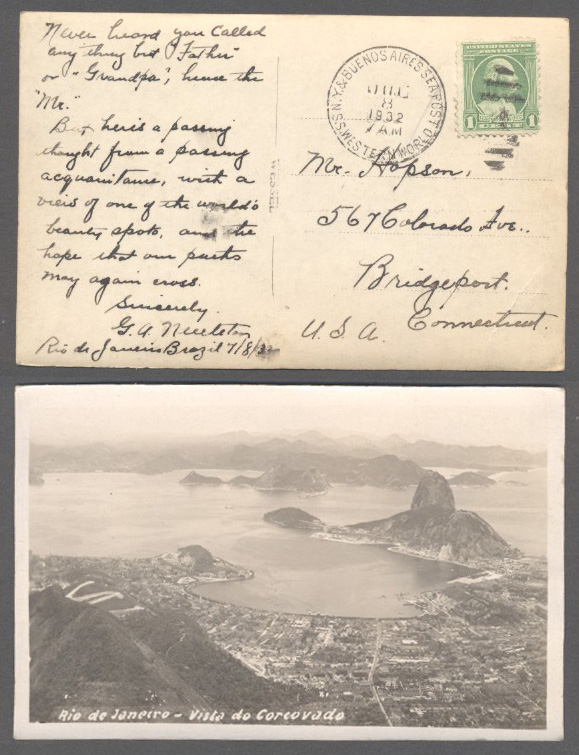 Never heard you called
any thing but "Father"
or "Grandpa", hence the
"Mr."
But here's a passing
thought from a passing
acquaintance, with a
view of one of the world's
beauty spots, and the
hope that our paths
may again cross.
Sincerely.
G. A.
Rio de Janeiro Brazil 7/8/32
WESSEL
N.Y. & BUENOS AIRES SEAPOST
8
1932
AM
SS WESTERN WORLD
UNITED STATES POSTAGE
1 1
Mr. Hopson,
567 Colorado Ave.,
Bridgeport.
Connecticut.
U.S.A.
Rio de Janeiro - Vista do Corcovado